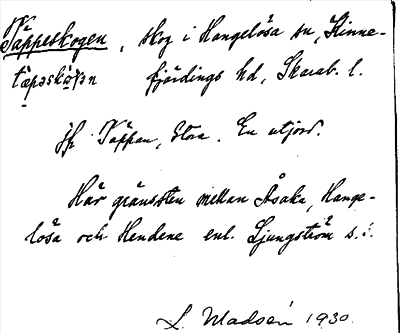 Täppeskogen, skog i Hangelösa sn, Kinne-
tæpəskoɡən fjärdings hd, Skarab. l.
Jfr Täppan, Stora. En utjord.
Här gränssten mellan Åsaka, Hange-
lösa och Hendene enl. Ljungström s.
L. Madsén 1930.